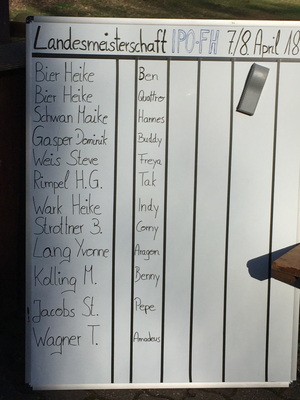 Landesmeisterschaft IPO-FH 7/8. April 18
Bier Heike Ben
Bier Heike Quattro
Schwan Maike Hannes
Gasper Dominik Buddy
Weis Steve Freya
Rimpel H.G. Tak
Wark Heike Indy
Strottner B. Corny
Lang Yvonne Aragon
Kolling M. Benny
Jacobs St. Pepe
Wagner T. Amadeus